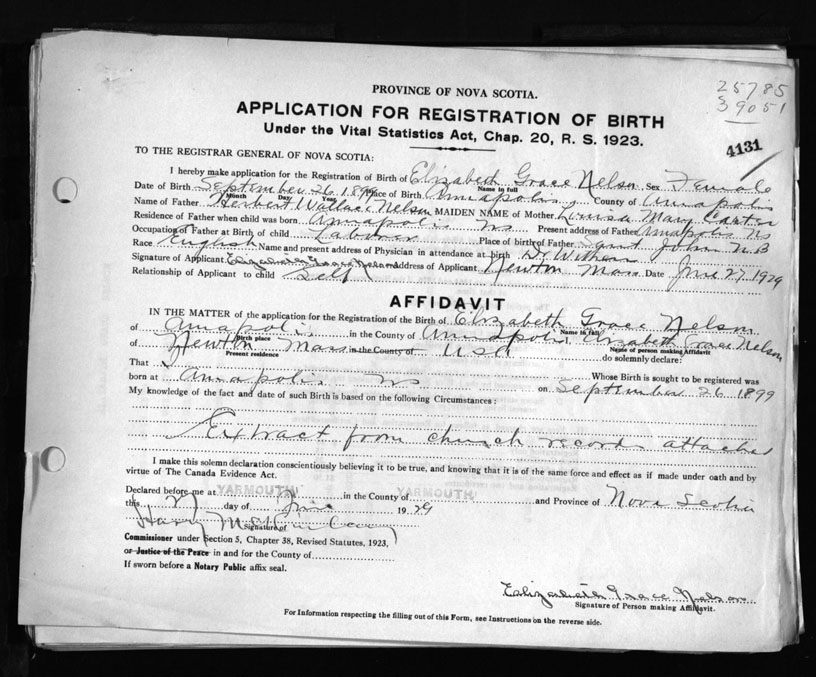 25785
39051
PROVINCE OF NOVA SCOTIA.
APPLICATION FOR REGISTRATION OF BIRTH
Under the Vital Statistics Act, Chap. 20, R. S. 1923.
4131
TO THE REGISTRAR GENERAL OF NOVA SCOTIA:
I hereby make application for the Registration of Birth of Elizabeth Grace Nelson Sex Female
Name in full
Date of Birth September 26 1899 Place of Birth Annapolis County of Annapolis
Month Day Year
Name of Father Herbert Wallace Nelson MAIDEN NAME of Mother Louisa Mary Carter
Residence of Father when child was born Annapolis NS Present address of Father Annapolis NS
Occupation of Father at Birth of child Laborer Place of birth of Father Saint John N.B
Race English Name and present address of Physician in attendance at birth Dr
Signature of Applicant Elizabeth Grace Nelson Address of Applicant Newton Mass Date June 27, 1929
Relationship of Applicant to child Self
AFFIDAVIT
IN THE MATTER of the application for the Registration of the Birth of Elizabeth Grace Nelson
Name in full
of Annapolis in the County of Annapolis I, Elizabeth Grace Nelson
Birth place Name of person making Affidavit
of Newton Mass in the County of USA do solemnly declare:
Present residence
That Whose Birth is sought to be registered was
born at Annapolis NS on September 26 1899
My knowledge of the fact and date of such Birth is based on the following Circumstances:
Extract from church records attached
I make this solemn declaration conscientiously believing it to be true, and knowing that it is of the same force and effect as if made under oath and by
virtue of The Canada Evidence Act.
Declared before me at YARMOUTH in the County of YARMOUTH and Province of Nova Scotia
this 27 day of June 1929
Harry
Signature of
Commissioner under Section 5, Chapter 38, Revised Statutes, 1923,
or Justice of the Peace in and for the County of
If sworn before a Notary Public affix seal.
Elizabeth Grace Nelson
Signature of Person making Affidavit.
For Information respecting the filling out of this Form, see Instructions on the reverse side.